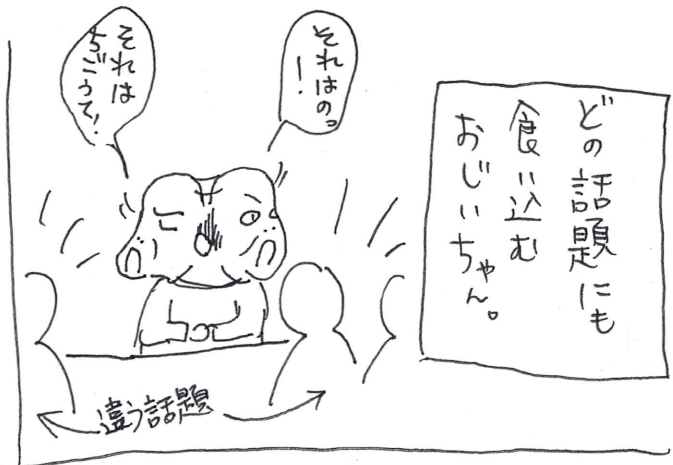 どの話題にも
食い込む
おじいちゃん。
それはのっ
!
それは
ちごうて!
違う話題